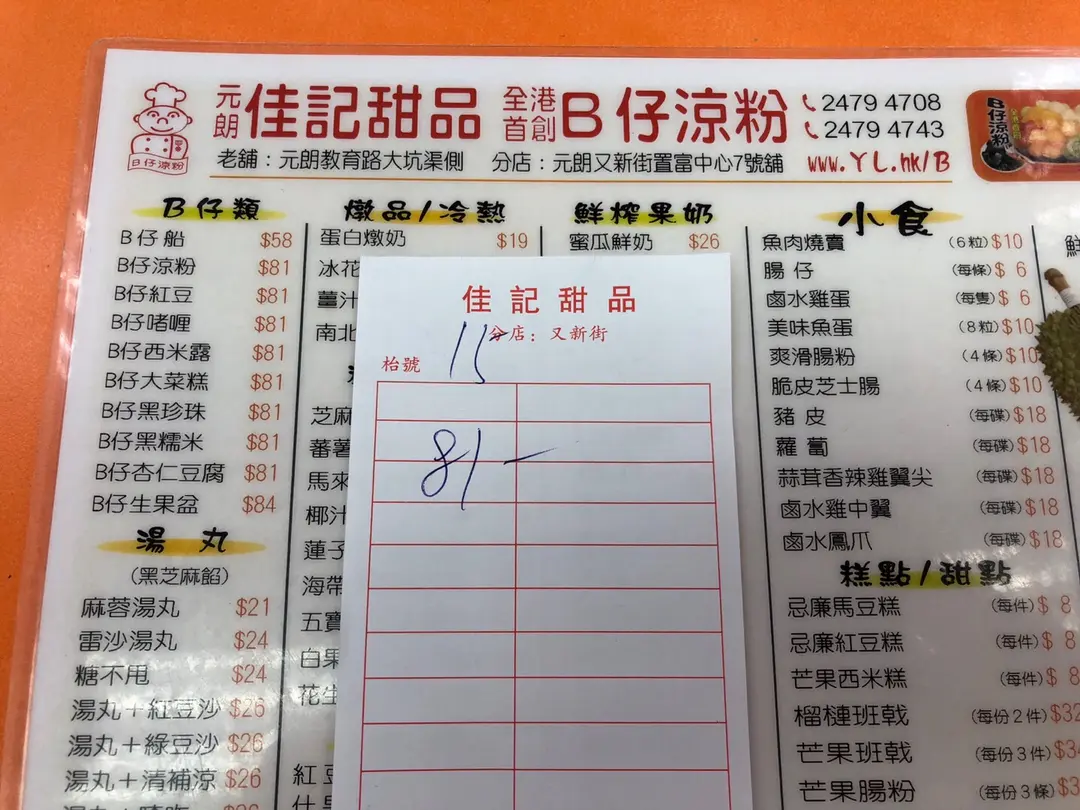 元朗 佳記甜品 全港首創 B仔涼粉 2479 4708
2479 4743
老舖：元朗教育路大坑渠側 分店：元朗又新街置富中心7號舖 www.YL.hk/B
B仔涼粉
B仔涼粉
B仔類
B仔船 $58
B仔涼粉 $81
B仔紅豆 $81
B仔啫喱 $81
B仔西米露 $81
B仔大菜糕 $81
B仔黑珍珠 $81
B仔黑糯米 $81
B仔杏仁豆腐 $81
B仔生果盆 $84
湯丸
(黑芝麻餡)
麻蓉湯丸 $21
雷沙湯丸 $24
糖不甩 $24
湯丸＋紅豆沙 $26
湯丸＋綠豆沙 $26
湯丸＋清補涼 $26
燉品/冷熱
蛋白燉奶 $19
冰花
薑汁
南北
芝麻
蕃薯
馬來
椰汁
蓮子
海帶
五寶
白果
花生
紅豆
鮮榨果奶
蜜瓜鮮奶 $26
佳記甜品
分店：又新街
枱號 11
81 —
小食
魚肉燒賣 (6粒) $10
腸仔 (每條) $ 6
鹵水雞蛋 (每隻) $ 6
美味魚蛋 (8粒) $10
爽滑腸粉 (4條) $10
脆皮芝士腸 (4條) $10
豬皮 (每碟) $18
蘿蔔 (每碟) $18
蒜茸香辣雞翼尖 (每碟) $18
鹵水雞中翼 (每碟) $18
鹵水鳳爪 (每碟) $18
糕點/甜點
忌廉馬豆糕 (每件) $ 8
忌廉紅豆糕 (每件) $ 8
芒果西米糕 (每件) $ 8
榴槤班戟 (每份2件) $32
芒果班戟 (每份3件)
芒果腸粉 (每份3條)
鮮